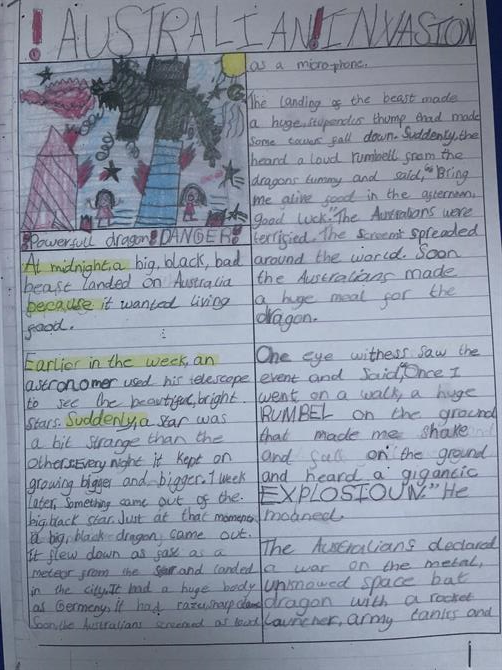 ! AUSTRALIAN! INVASION
!Powersull dragon! DANGER!
At midnight,a big, black, bad
beast landed on Australia
because it wanted living
good.
Earlier in the week, an
astronomer used his telescope
to see the beautiful, bright
stars. Suddenly,a star was
a bit strange than the
others. Every night it kept on
growing bigger and bigger. 1 week
later, Something came out of the
big black star. Just at that moment
a big, black dragon, came out.
It flew down as fast as a
meteor from the star and landed
in the city. It had a huge body
as Germeny, it had razu sharp claws
Soon the Australians screamed as loud
as a microphone.
The landing of the beast made
a huge, stupendus thump that made
Some towers fall down. Suddenly, the
heard a loud rumbell from the
dragons tummy and said, "Bring
me alive good in the afternoon,
good luck. The Australians were
terrified. The screems spreaded
around the world. Soon
the Australians made
a huge meal for the
dragon.
One eye witness saw the
event and Said,"Once I
went on a walk, a huge
RUMBEL on the ground
that made me shake
and fall on the ground
and heard a gigantic
EXPLOSIOUN." He
moaned.
The Australians declared
a war on the metal,
unknowed space bat
dragon with a rocket
launcher, army tanks and